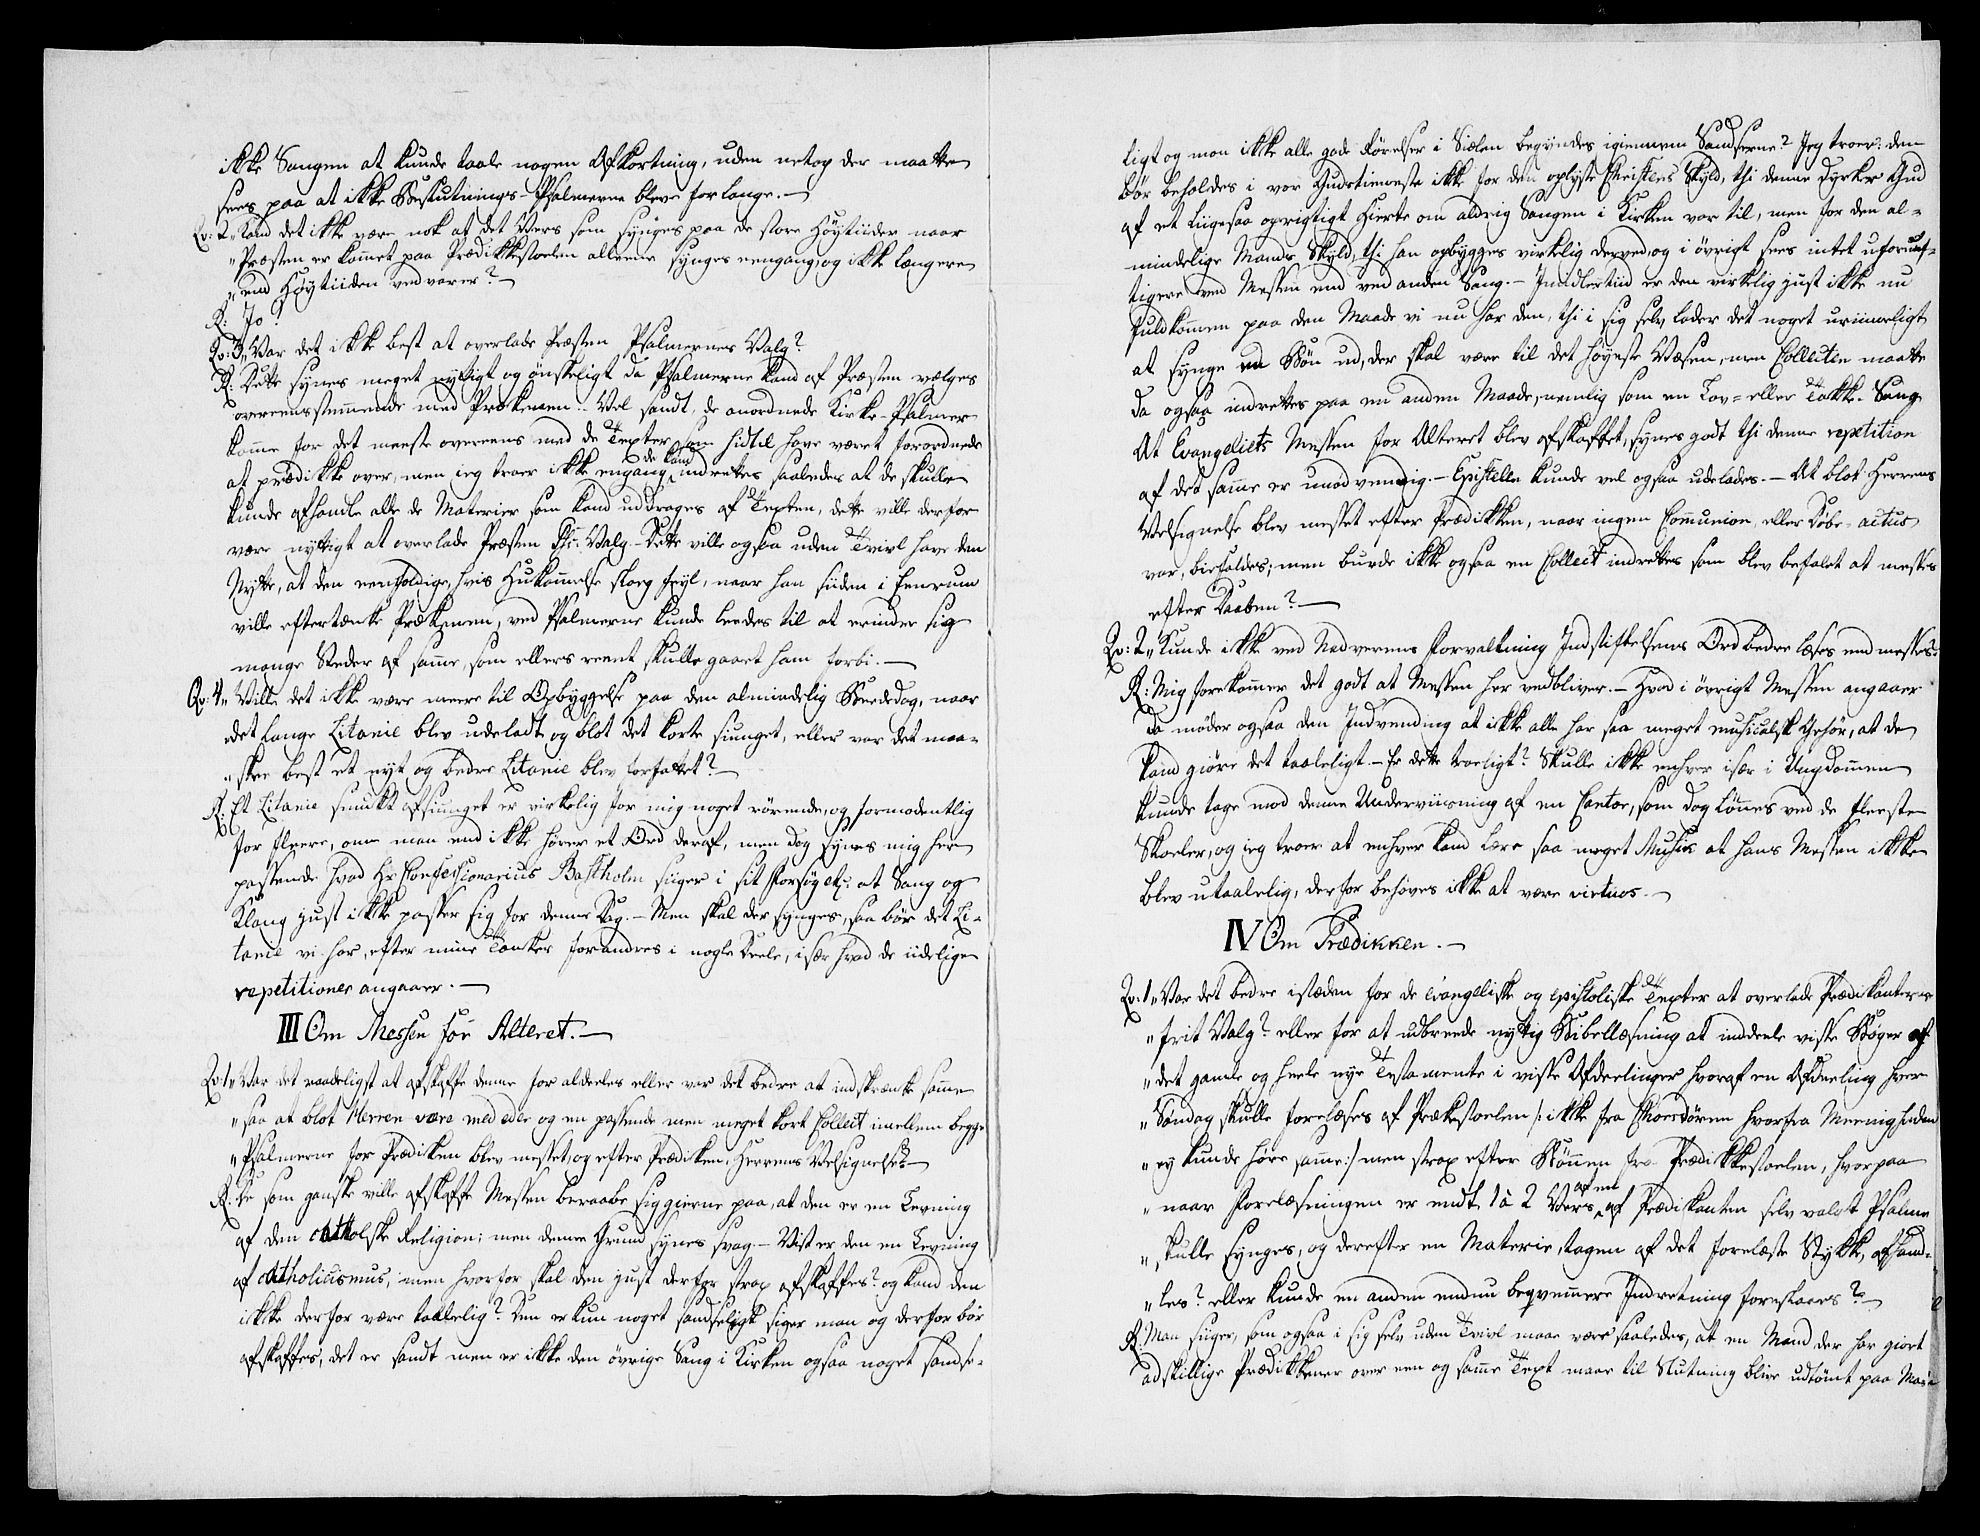 ikke Sangen at kunde taale nogen Afkortning, uden netop der maatte
sees paa at ikke Beslutnings-Psalmerne bleve for lange. —
Qv: 2 „Kand det ikke være nok at det Vers som synges paa de store Høytiider naar
„Præsten er kom̅et paa Prædikkestoelen alleene synges eengang, og ikke længere
„end Høytiiden vedvarer? —
R: Jo!
Qv: 3 „Var det ikke best at overlade Præsten Psalmernes Valg?
R: Dette synes meget nyttigt og ønskeligt da Psalmerne kand af Præsten vælges
overeensstem̅ende med Prækenen. Vel sandt, de anordnede Kirke-Psalmer
kom̅e for det meeste overeens med de Texter som hidtil have været forordnede
at prædikke over, men ieg troer ikke engang de kand indrettes saaledes at de skulle
kunde afhandle alle de Materier som kand uddrages af Texten, dette ville derfor
være nyttigt at overlade Præsten Ps: Valg. Dette ville ogsaa uden Tvivl have den
Nytte, at den eenfoldige, hvis Hukom̅else slaaer feyl, naar han siiden i Eenrum
ville eftertænke Prækenen, ved Psalmerne kunde leedes til at erindre sig
mange Steder af sam̅e, som ellers reent skulle gaaet ham forbi. —
Qv: 4 „Ville det ikke være meere til Opbyggelse paa den almindelig Beededag, naar
„det lange Litanie blev udeladt og blot det korte siunget, eller var det maa-
„skee best et nyt og bedre Litanie blev forfattet? —
R: Et Litanie smukt afsiunget er virkelig for mig noget rørende, og formodentlig
for fleere, om man end ikke hører et Ord deraf, men dog synes mig her
passende hvad Hr Confessionarius Bastholm siiger i sit Forsøg etc: at Sang og
Klang just ikke passer sig for denne Dag. — Men skal der synges, saa bør det Li-
tanie vi har, efter mine Tanker forandres i nogle Deele, især hvad de iidelige
repetitioner angaaer. —
III Om Messen for Alteret. —
Qv: 1 „Var det raadeligst at afskaffe denne for aldeeles eller var det bedre at indskrænke sam̅e
„saa at blot Herren være med eder og en passende men meget kort Collect imellem begge
„Psalmerne for Prædiken blev messet, og efter Prædiken, Herrens Velsignelse? —
R: De som ganske ville afskaffe Messen beraabe sig gierne paa, at den er en Levning
af den catholske Religion; men denne Grund synes svag. — Vist er den en Levning
af catholicismus; men hvorfor skal den just derfor strax afskaffes? og kand den
ikke derfor være taalelig? Den er kun noget sandseligt siger man og derfor bør
afskaffes; det er sandt men er ikke den øvrige Sang i Kirken ogsaa noget sandse-
ligt og mon ikke alle gode Førelser i Siælen begyndes igiennem Sandserne? Jeg troer: den
bør beholdes i vor Gudstieneste ikke for den oplyste Christens Skyld, thi denne dyrker Gud
af et liigesaa oprigtigt Hierte om aldrig Sangen i Kirken var til, men for den al-
mindelige Mands Skyld, thi han opbygges virkelig derved, og i øvrigt sees intet ufornuf-
tigere ved Messen end ved anden Sang. — Imidlertiid er den virkelig just ikke nu
fuldkom̅en paa den Maade vi nu har den, thi i sig selv lader det noget urimeligt
at synge en Bøn ud, der skal være til det høyeste Væsen, men Collecten maatte
da ogsaa indrettes paa en anden Maade, nemlig som en Lov- eller Takke-Sang
At Evangeliets Messen for Alteret blev afskaffet, synes godt thi denne repetition
af det sam̅e er unødvendig. — Epistelle kunde vel ogsaa udelades. — At blot Herrens
Velsignelse blev messet efter Prædikken, naar ingen Com̅union eller Døbe-actus
var, biefaldes; men burde ikke ogsaa en Collect indrettes som blev befalet at messes
efter Daaben? —
Qv: 2 „Kunde ikke ved Nadverens Forvaltning Indstiftelsens Ord bedre læses end messes?
R: Mig forekom̅er det godt at Messen her vedbliver. — Hvad i øvrigt Messen angaaer
da møder ogsaa den Indvending at ikke alle har saa meget musicalsk Gehør, at de
kand giøre det taaleligt. — Er dette troeligt? Skulle ikke enhver især i Ungdom̅en
kunde tage mod denne Underviisning af en Cantor, som dog lønnes ved de fleeste
Skoler, og ieg troer at enhver kand lære saa meget Musik at hans Messen ikke
blev utaalelig, derfor behøves ikke at være virtuos. —
IV Om Prædikken. —
Qv: 1 „Var det bedre isteden for de evangeliske og epistoliske Texter at overlade Prædikanterne
„frit Valg? eller for at udbreede nyttig Bibellæsning at inddeele visse Bøger af
„det gamle og heele nye Testamente i visse Afdeelinger hvoraf en Afdeeling hver
„Søndag skulle forelæses af Prækestoelen /: ikke fra Choersdøren hvorfra Meenigheden
„ey kunde høre sam̅e :/ men strax efter Bønnen fra Prædikkestoelen, hvorpaa
„naar Forelæsningen er endt 1 à 2 Vers af en af Prædikanten selv valgt Psalme
„skulle synges, og derefter en Materie, tagen af det forelæste Stykke, afhand-
„les? eller kunde en anden endnu beqvem̅ere Indretning foreslaaes? —
R: Man siiger, som ogsaa i sig selv uden Tvivl maae være saaledes, at en Mand der har giort
adskillige Prædikkener over een og sam̅e Text maae til Slutning blive udtømt paa Mate